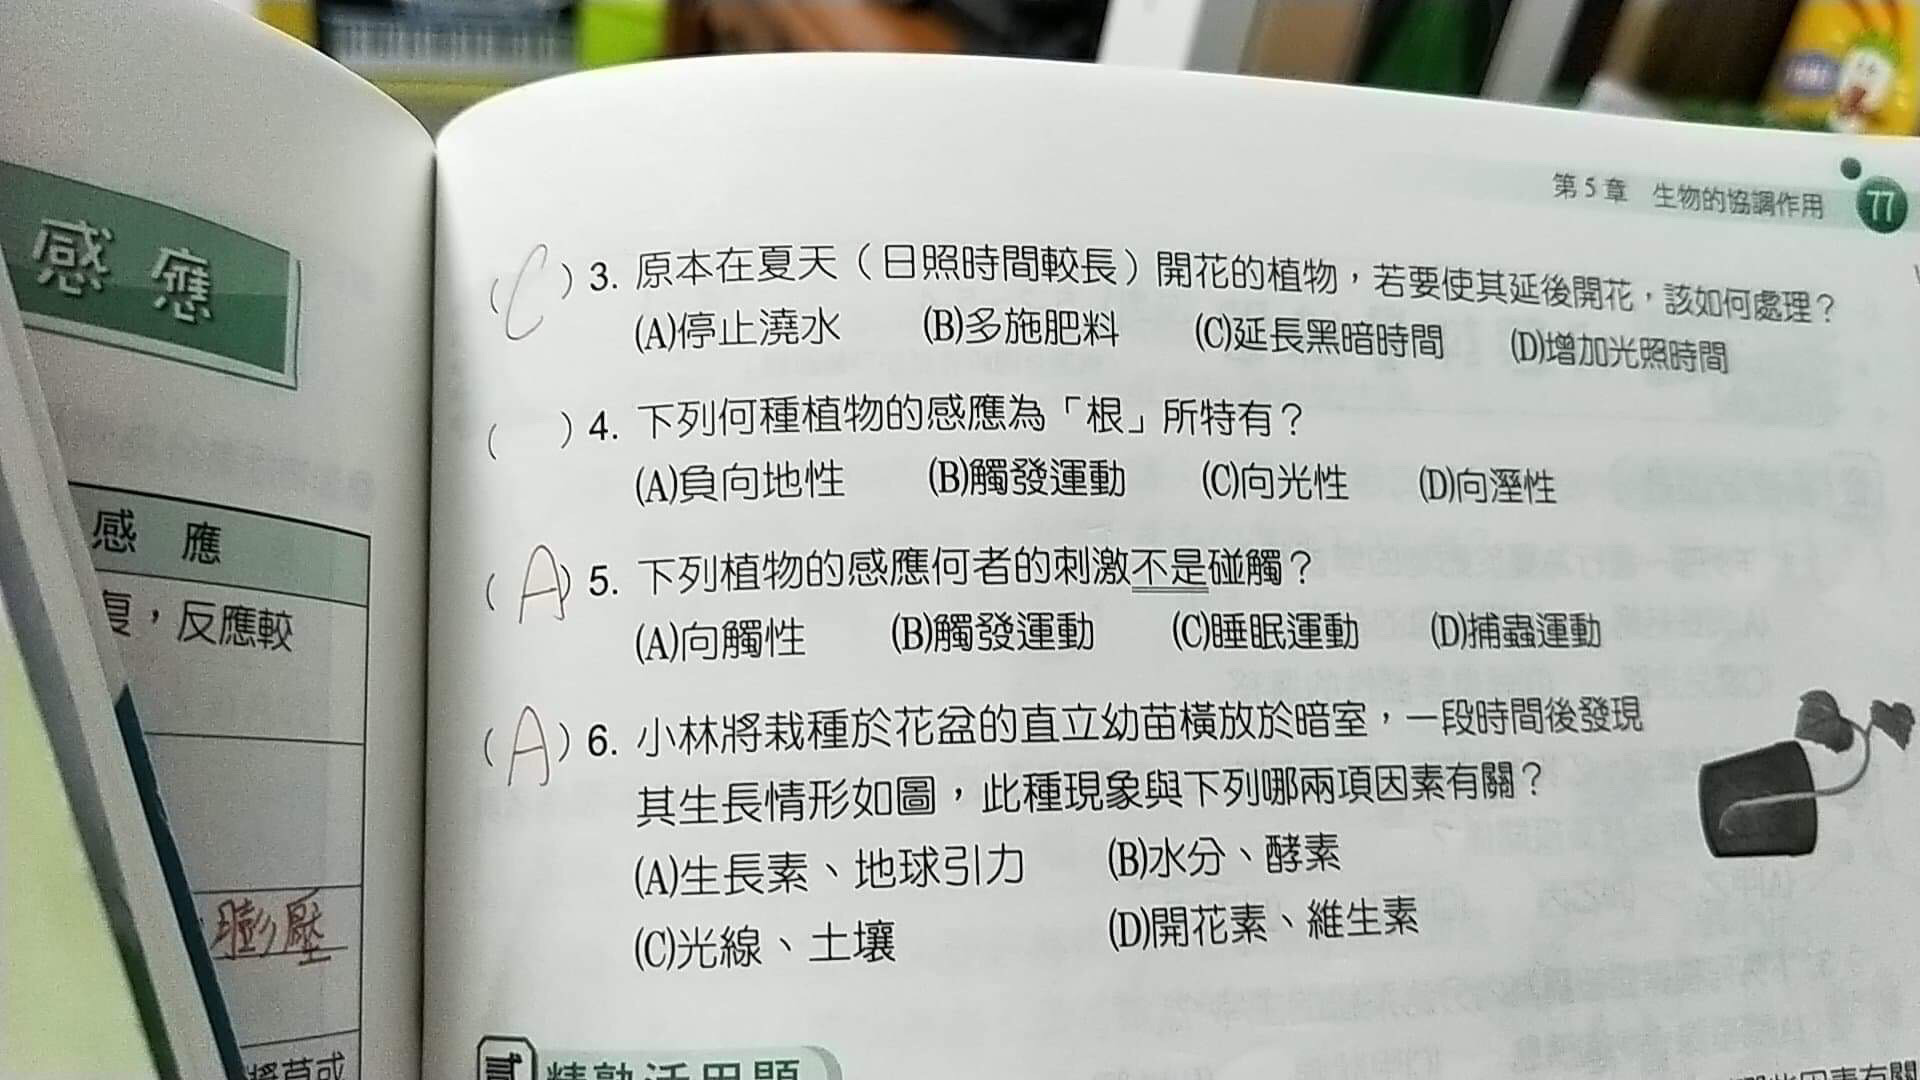 感應
感應
反應較
膨壓
第5章 生物的協調作用 77
(C) 3. 原本在夏天（日照時間較長）開花的植物，若要使其延後開花，該如何處理？
(A)停止澆水 (B)多施肥料 (C)延長黑暗時間 (D)增加光照時間
( ) 4. 下列何種植物的感應為「根」所特有？
(A)負向地性 (B)觸發運動 (C)向光性 (D)向溼性
(A) 5. 下列植物的感應何者的刺激不是碰觸？
(A)向觸性 (B)觸發運動 (C)睡眠運動 (D)捕蟲運動
(A) 6. 小林將栽種於花盆的直立幼苗橫放於暗室，一段時間後發現
其生長情形如圖，此種現象與下列哪兩項因素有關？
(A)生長素、地球引力 (B)水分、酵素
(C)光線、土壤 (D)開花素、維生素